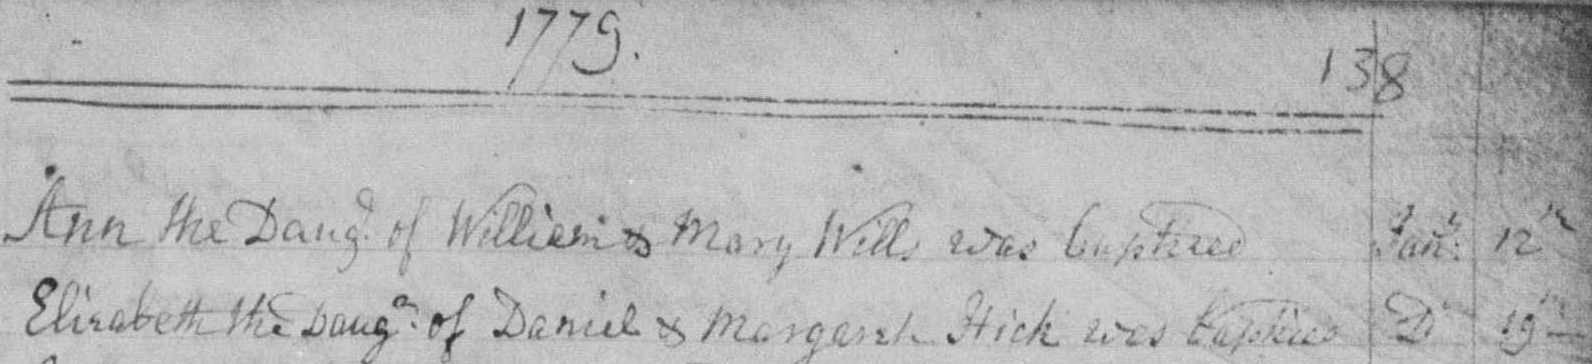 1779.
138
Ann the Daugr. of William & Mary Wills was baptized Janr. 12th
Elizabeth the Daugr. of Daniel & Margaret Hick was baptized Do 19th